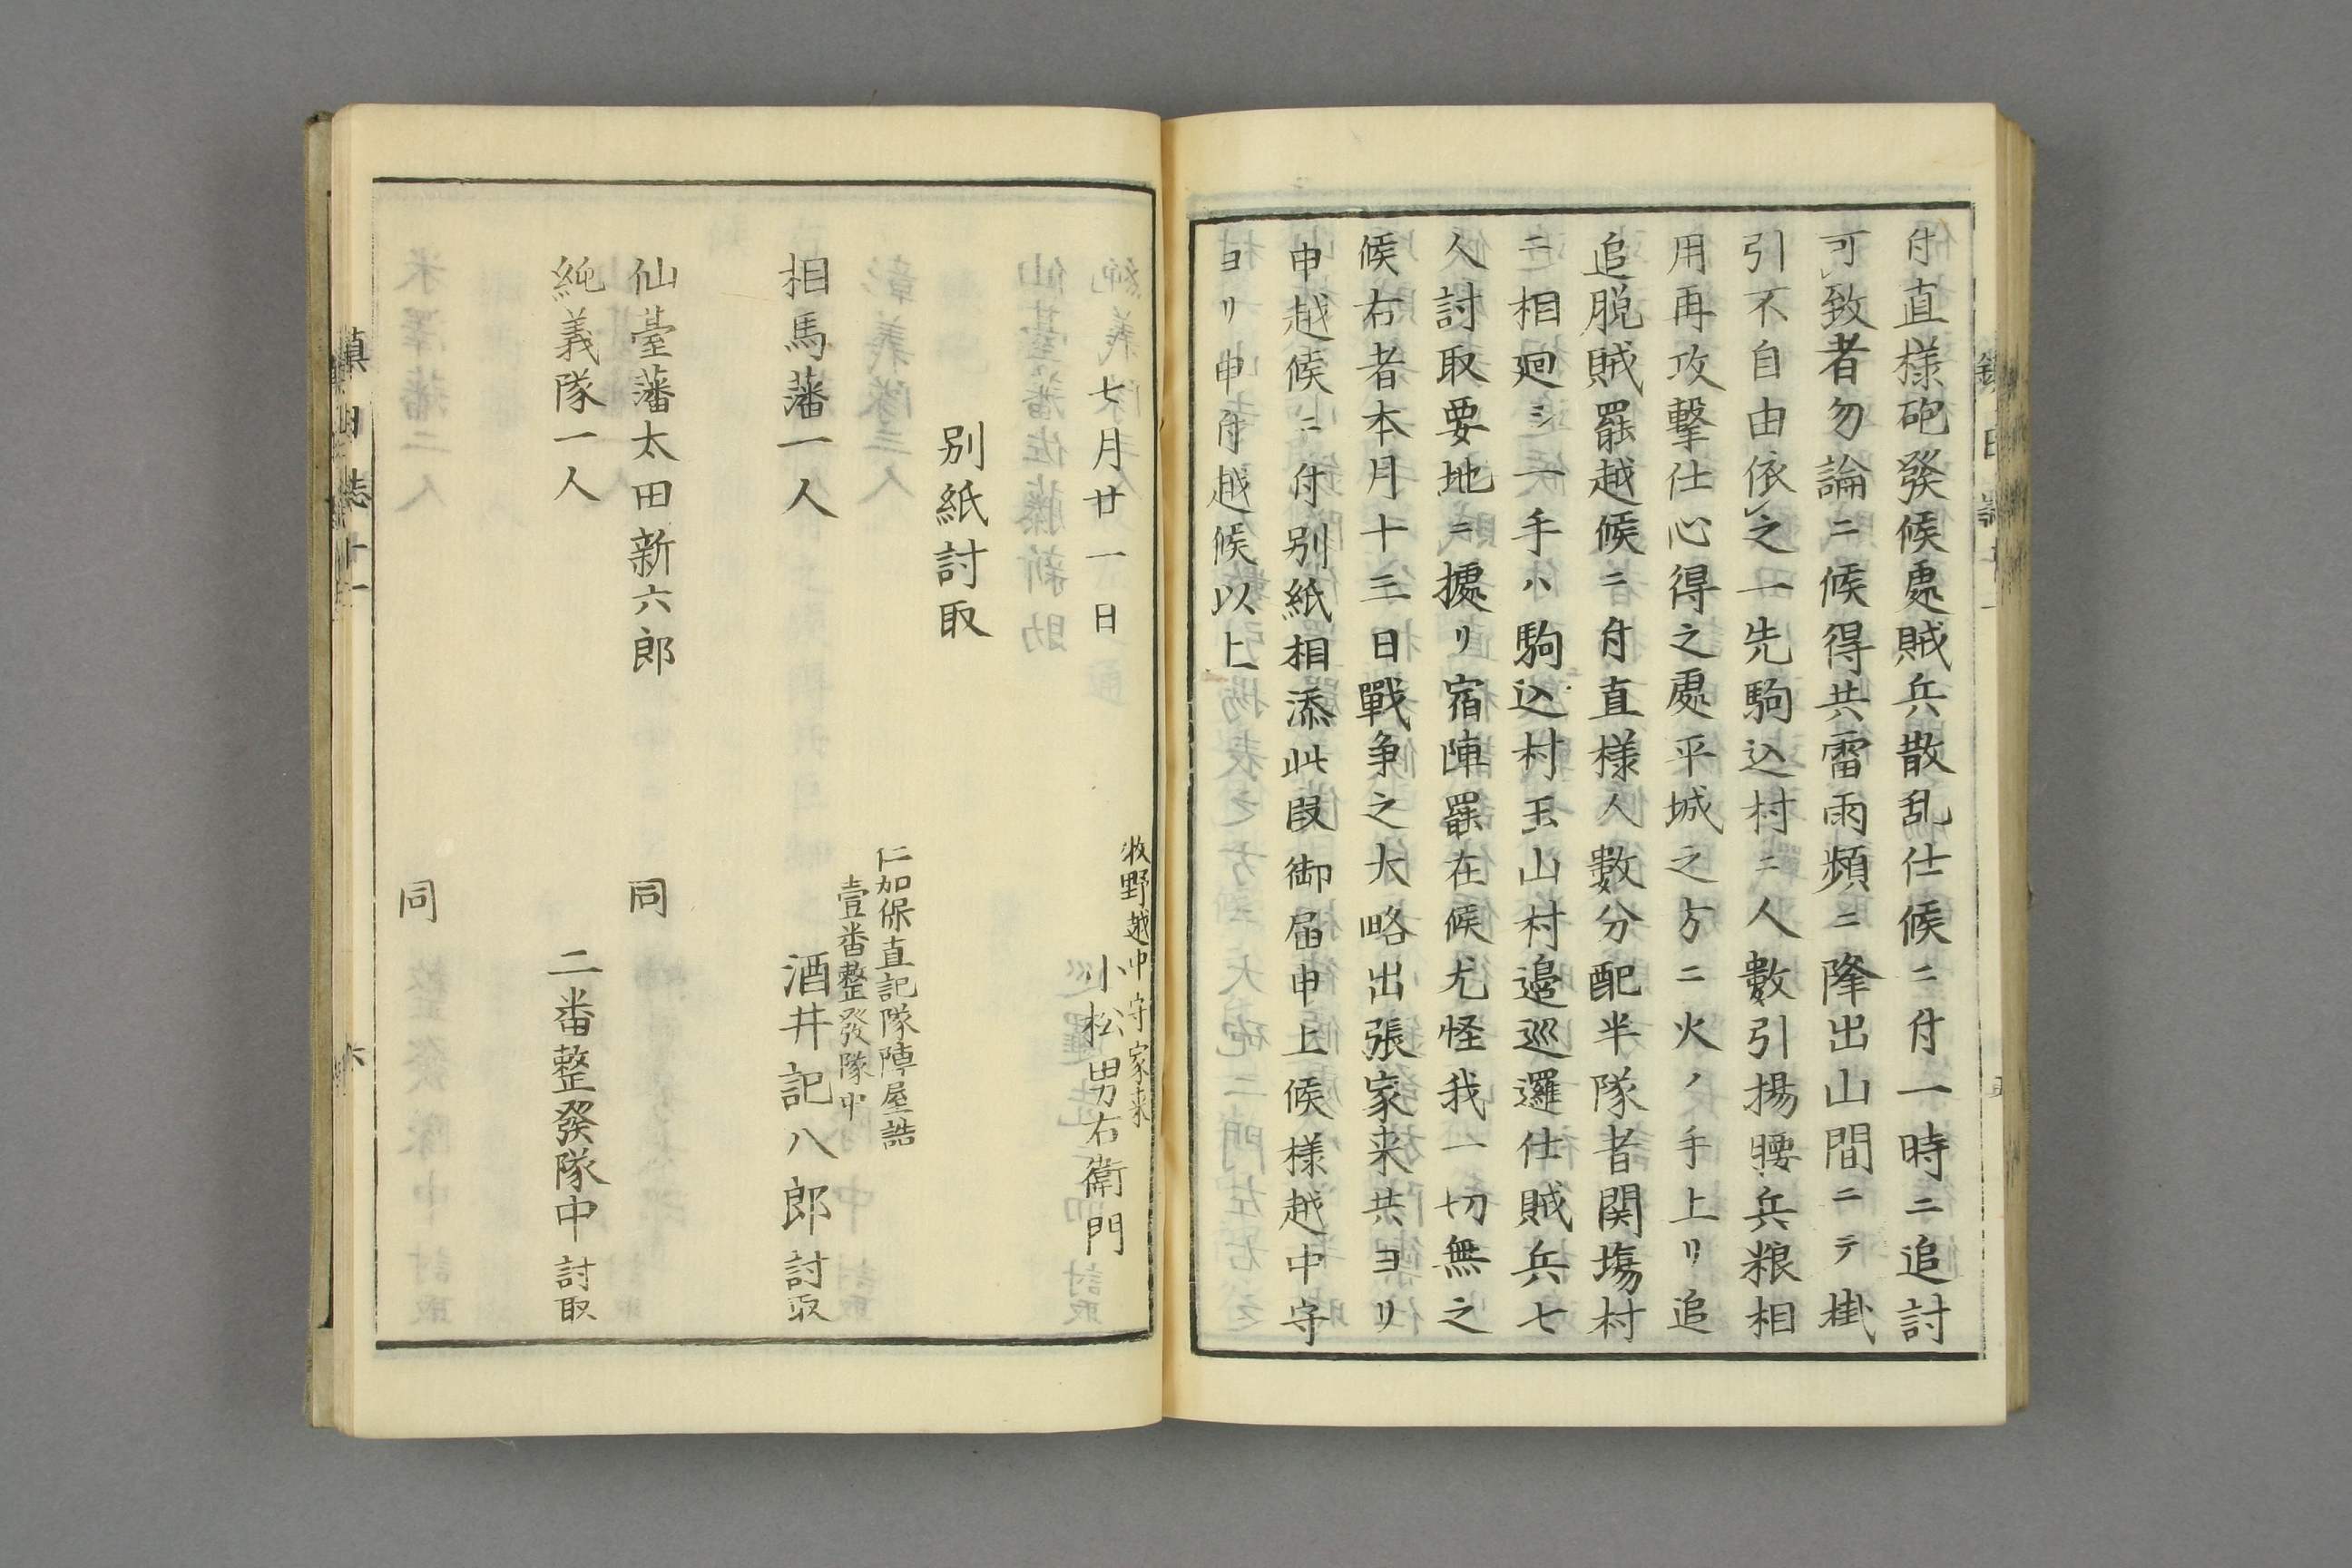 付直様砲發候處賊兵散乱仕候ニ付一時ニ追討
可致者勿論ニ候得共雷雨頻ニ降出山間ニテ掛
引不自由依之一先駒込村ニ人數引揚腰兵粮相
用再攻撃仕心得之處平城之方ニ火ノ手上リ追
追脱賊罷越候ニ付直様人數分配半隊者関塲村
ニ相廻シ一手ハ駒込村玉山村邉巡邏仕賊兵七
人討取要地ニ據リ宿陣罷在候尤怪我一切無之
候右者本月十三日戰争之大略出張家来共ヨリ
申越候ニ付別紙相添此段御届申上候様越中守
ヨリ申付越候以上
牧野越中守家来
七月廿一日 小松男右衛門
別紙討取
仁加保直記隊陣屋詰
壹番整發隊中
相馬藩一人 酒井記八郎討取
仙臺藩太田新六郎 同
純義隊一人 二番整發隊中討取
同
鎮日誌十一 六